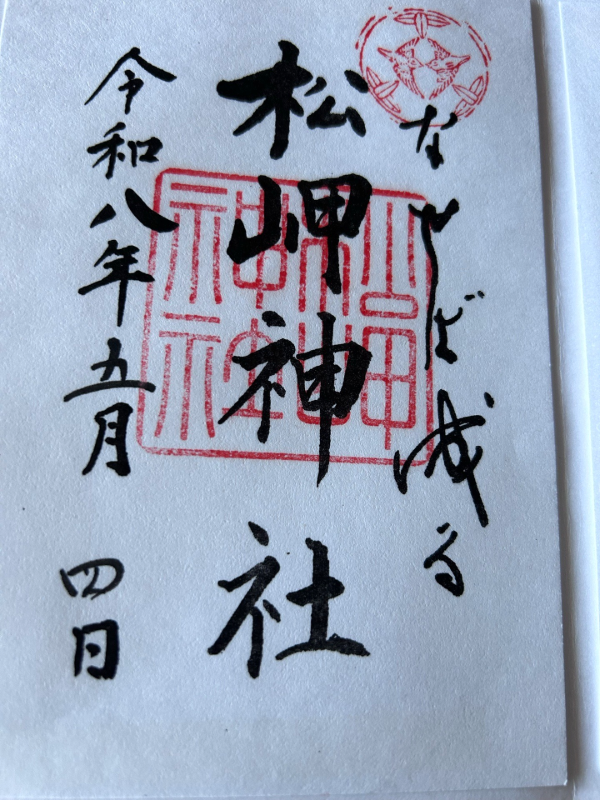 なせば成る
松岬神社
令和八年五月 四日